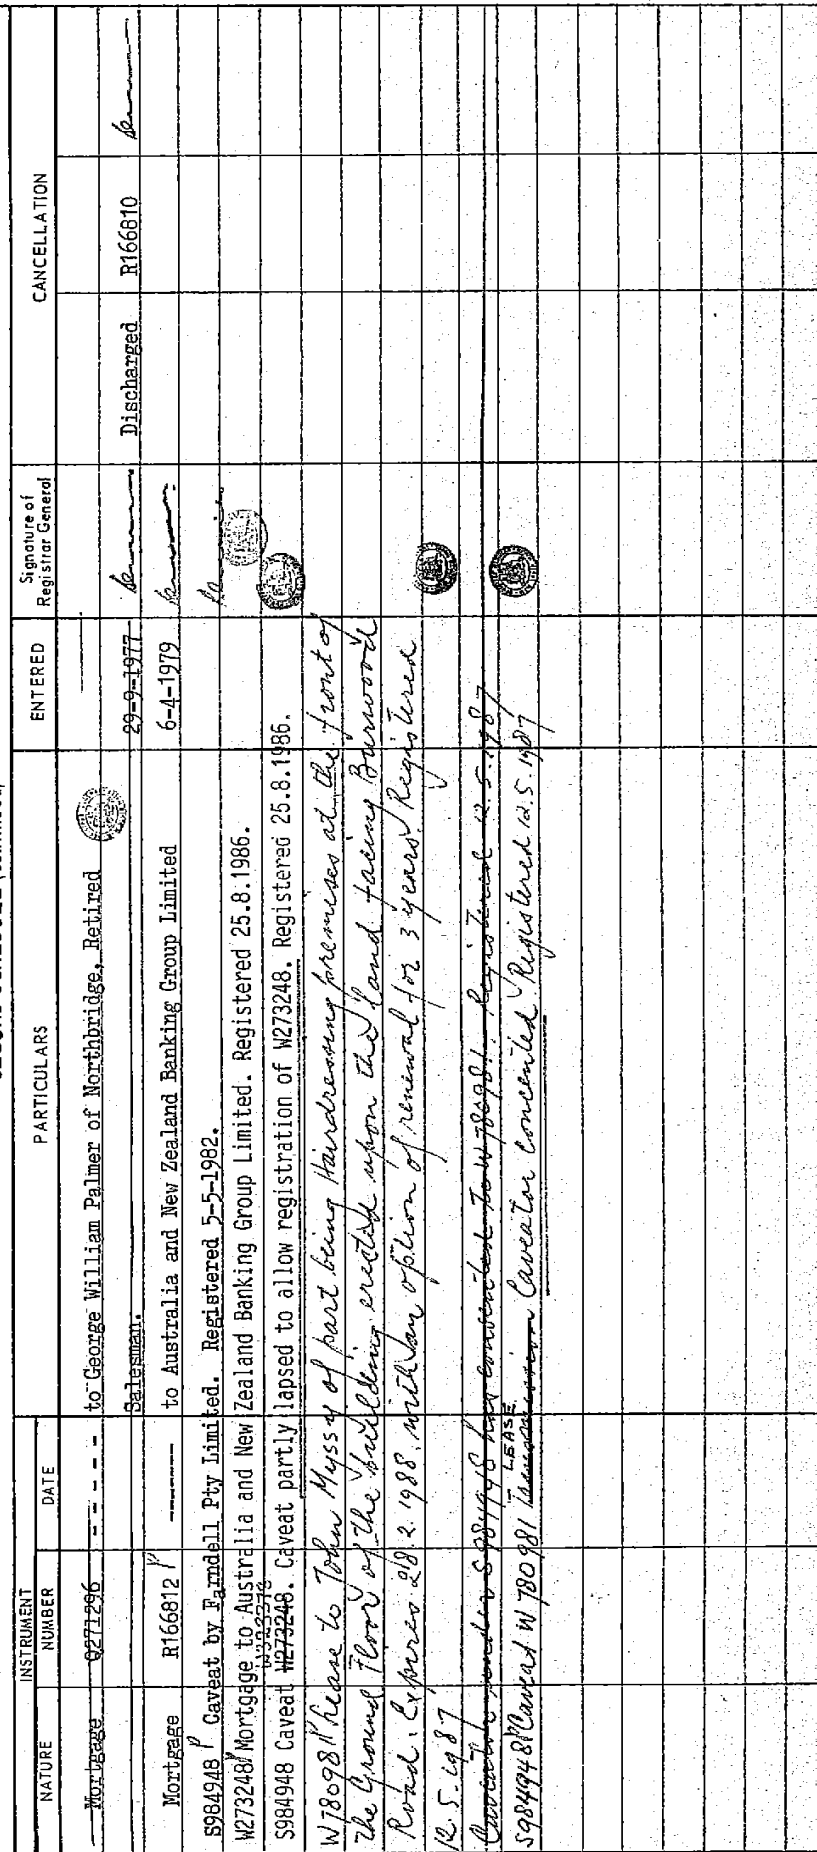 INSTRUMENT
NATURE NUMBER DATE PARTICULARS ENTERED Signature of Registrar General CANCELLATION
Mortgage Q271296 ----- to George William Palmer of Northbridge, Retired
Salesman. 29-9-1977 Discharged R166810
Mortgage R166812 ------- to Australia and New Zealand Banking Group Limited 6-4-1979
S984948 Caveat by Farndell Pty Limited. Registered 5-5-1982.
W273248 Mortgage to Australia and New Zealand Banking Group Limited. Registered 25.8.1986.
S984948 Caveat W273248. Caveat partly lapsed to allow registration of W273248. Registered 25.8.1986.
W780981 Lease to John Myssy of part being Hairdressing premises at the front of
the Ground Floor of the building erected upon the land facing Burwood
Road. Expires 28.2.1988. with an option of renewal for 3 years. Registered
12.5.1987
Caveator under S984948 has consented to W780981. Registered 12.5.1987
LEASE
S984948 Caveat W780981 Caveator Consented Registered 12.5.1987